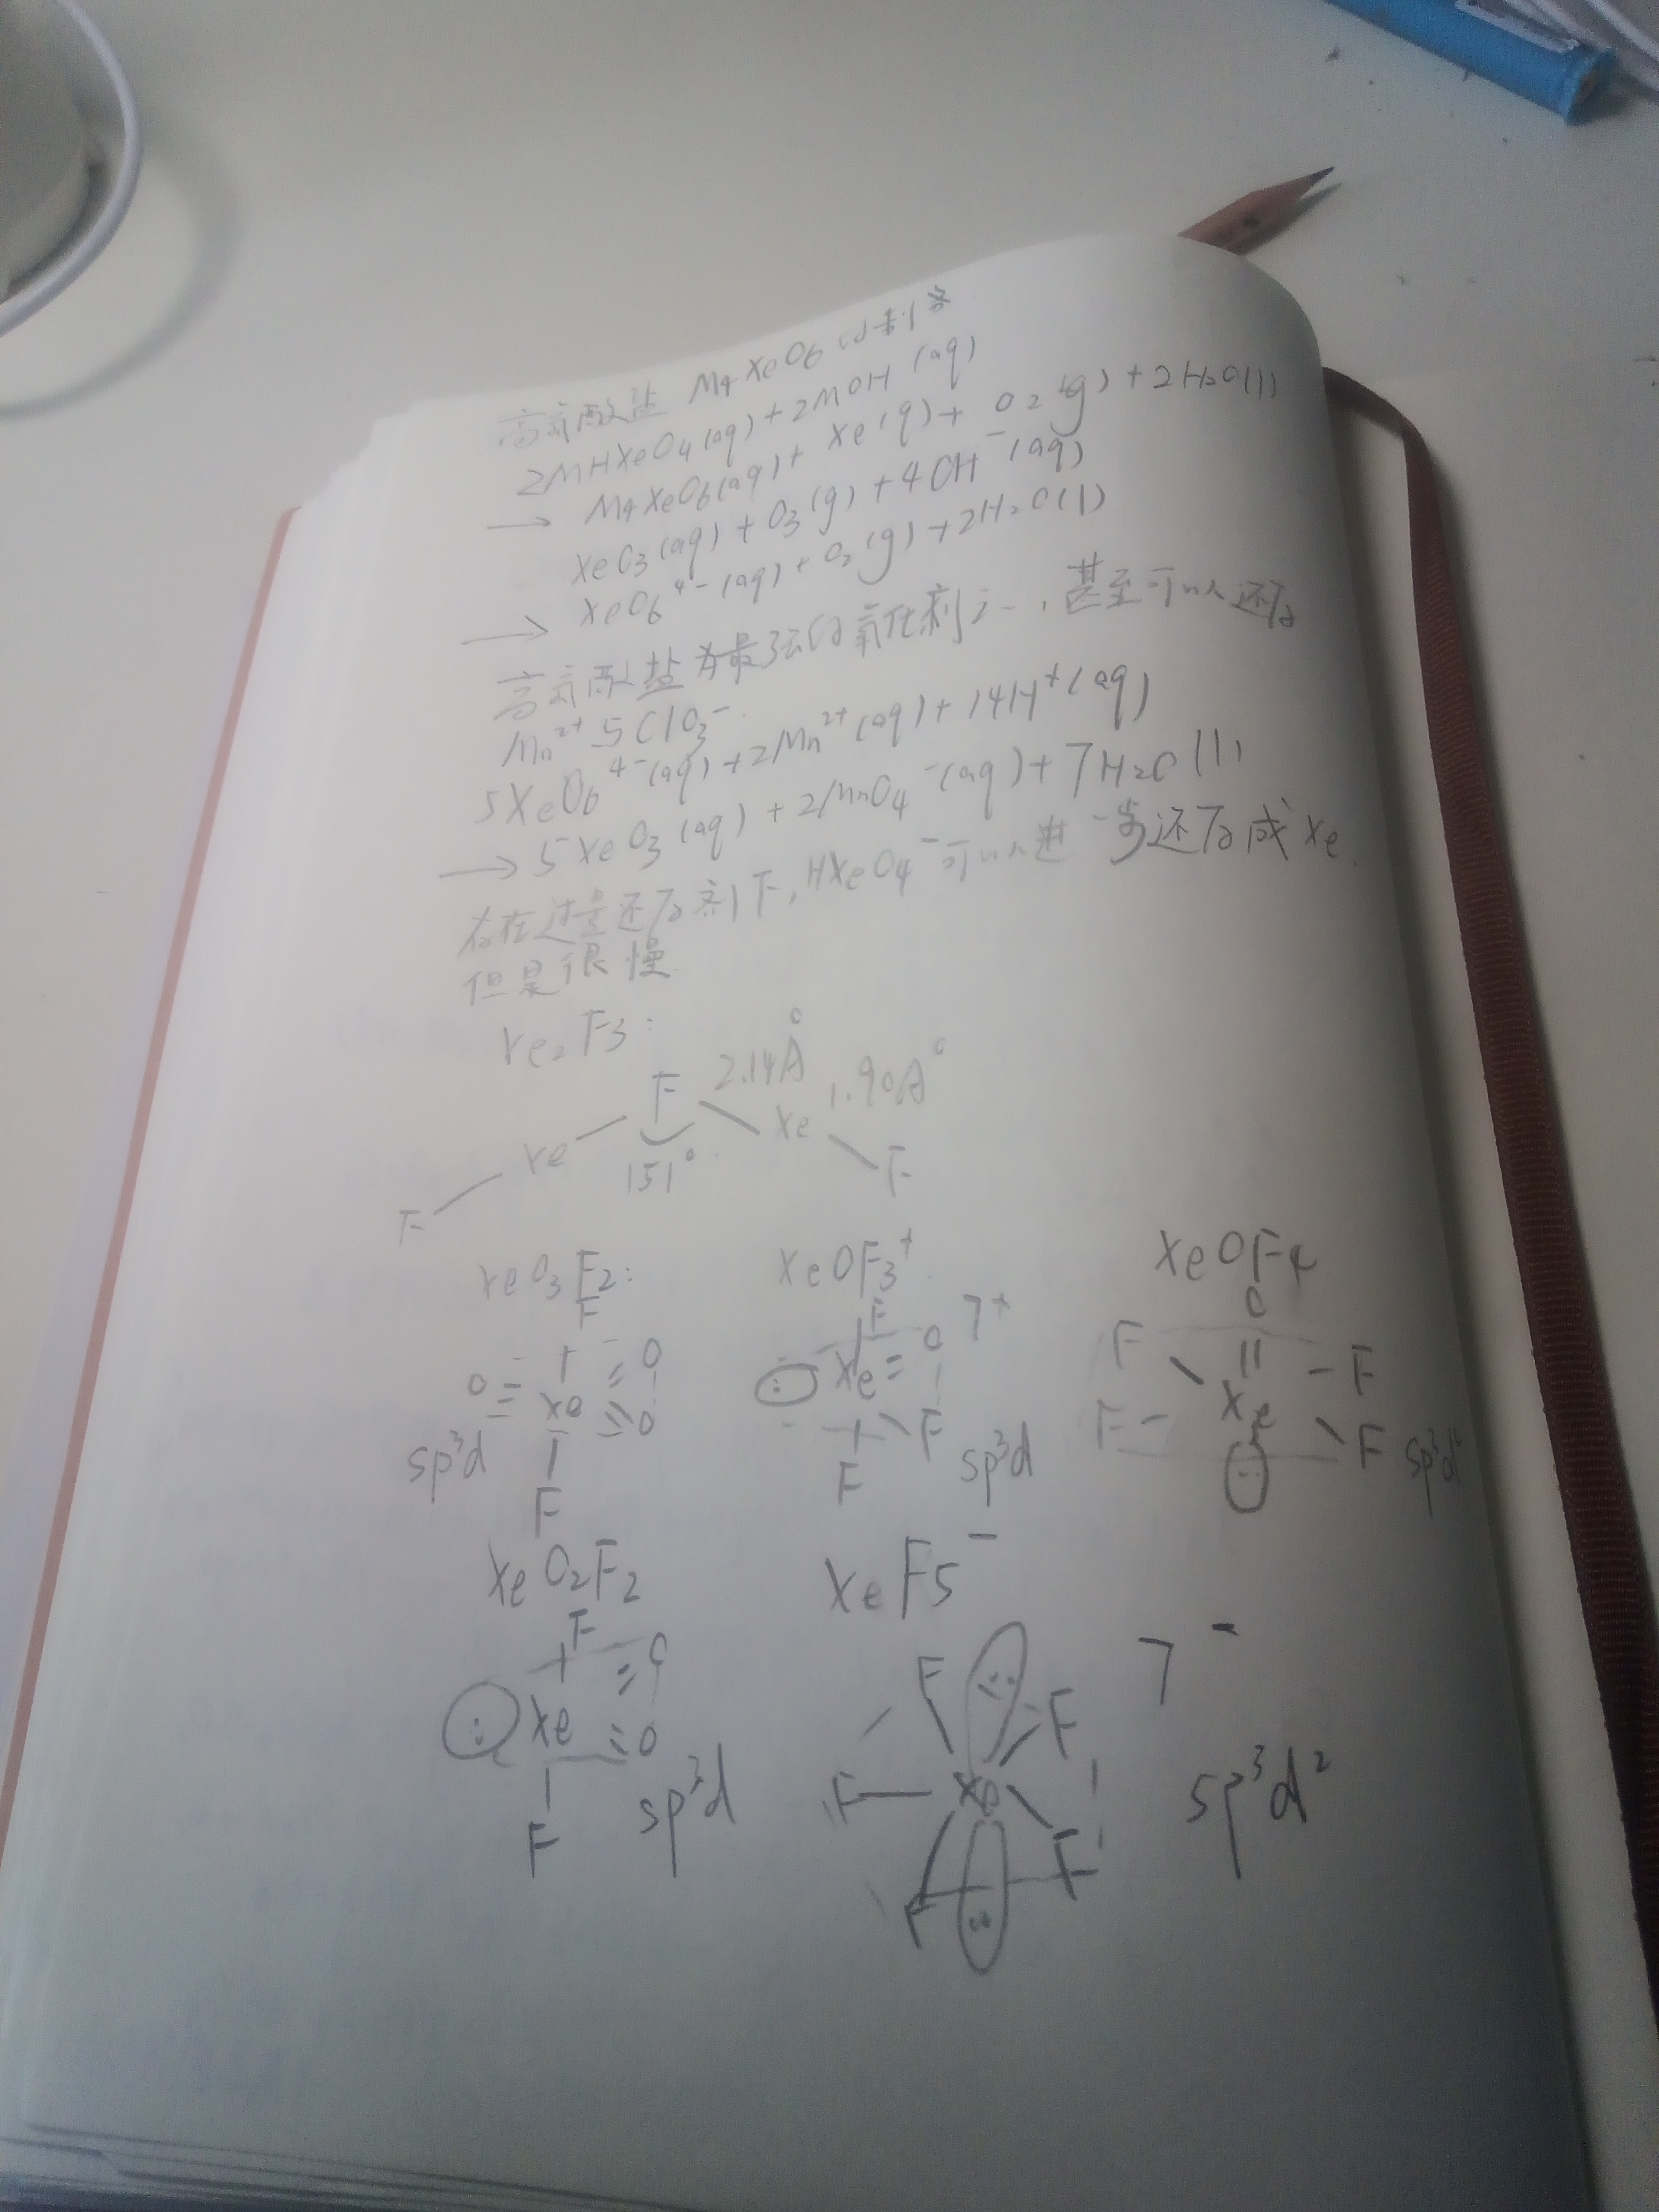 高氙酸盐 M4XeO6的制备
2MHXeO4(aq)+2MOH(aq)
→ M4XeO6(aq)+Xe(g)+O2(g)+2H2O(l)
XeO3(aq)+O3(g)+4OH⁻(aq)
→ XeO6⁴⁻(aq)+O2(g)+2H2O(l)
高氙酸盐为最强的氧化剂之一,甚至可以还原
Mn²⁺与ClO3⁻.
5XeO6⁴⁻(aq)+2Mn²⁺(aq)+14H⁺(aq)
→ 5XeO3(aq)+2MnO4⁻(aq)+7H2O(l)
存在过量还原剂下,HXeO4⁻可以进一步还原成Xe.
但是很慢.
Xe2F3:
F 2.14Å 1.90Å
Xe 151° Xe
F F
XeO3F2: XeOF3⁺ XeOF4
F F O
O Xe O : Xe O ⁺ F F
O F Xe
F F F F
sp³d sp³d sp³d²
XeO2F2 XeF5⁻
F O F F ⁻
: Xe F Xe
O F F
F sp³d sp³d²